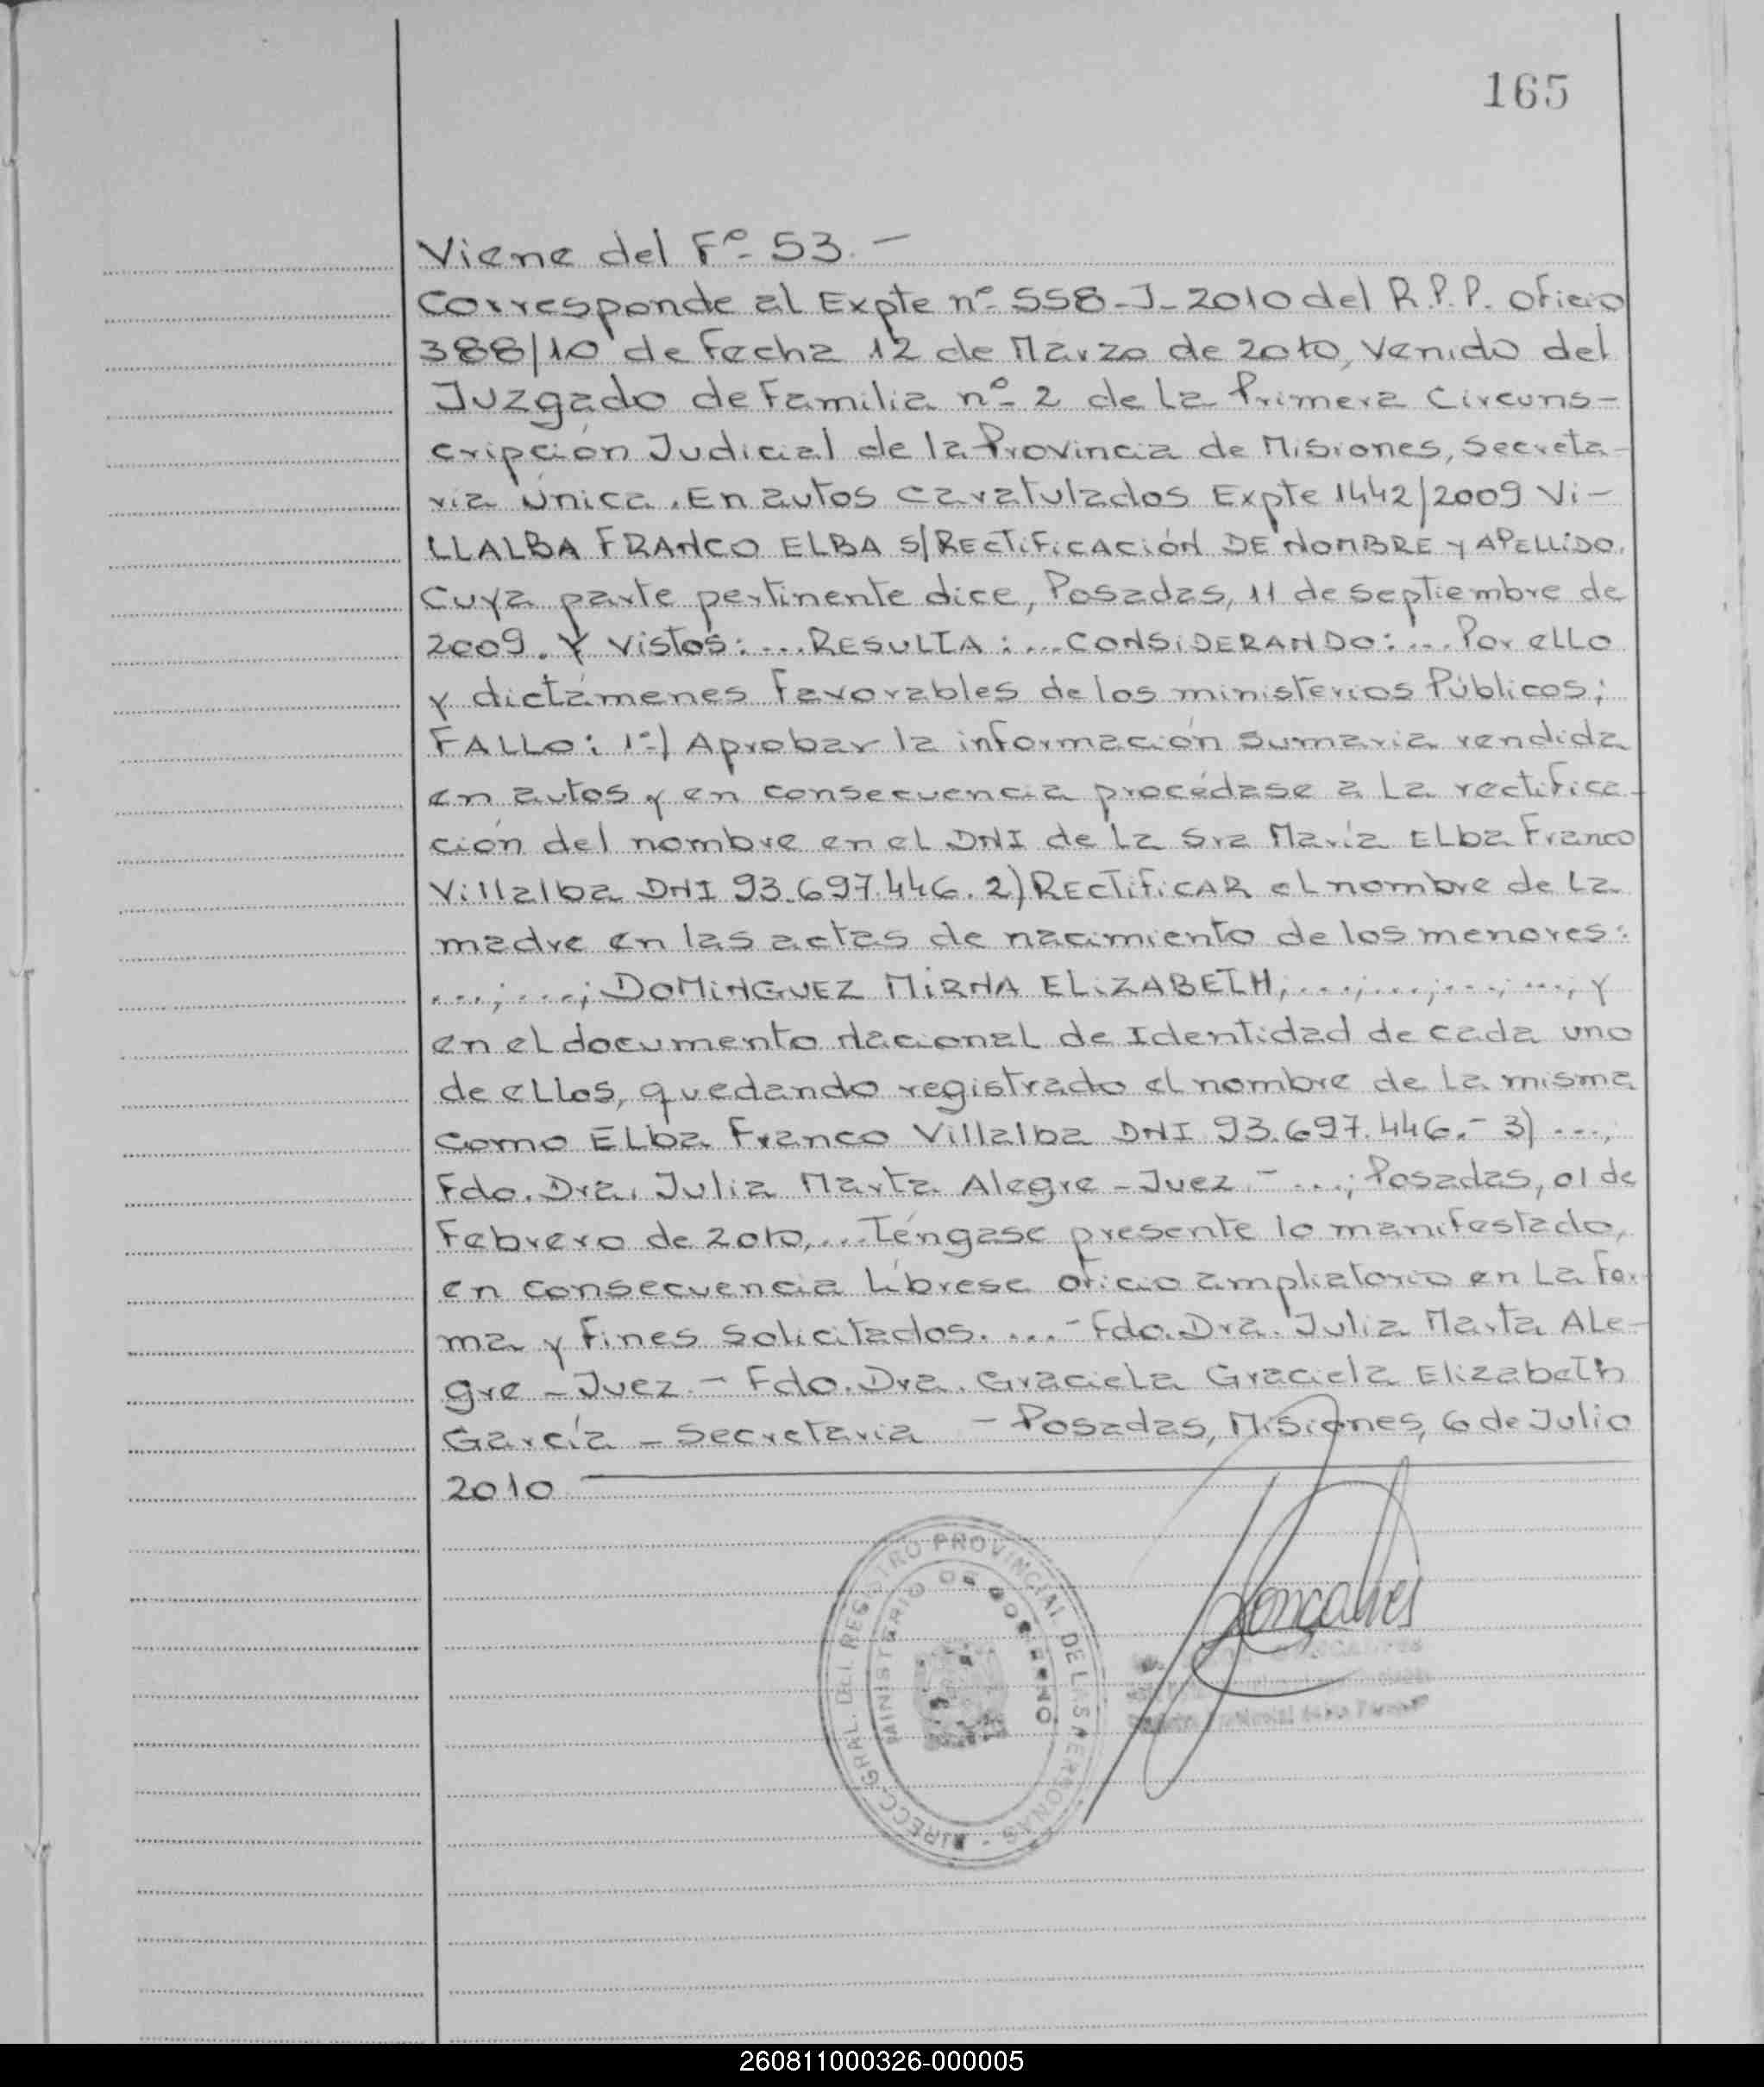 165
Viene del Fº 53.-
Corresponde al Expte nº 558-J-2010 del R.P.P. oficio
388/10 de fecha 12 de Marzo de 2010, venido del
Juzgado de Familia nº 2 de la Primera Circuns-
cripción Judicial de la Provincia de Misiones, Secreta-
ria única. En autos caratulados Expte 1442/2009 Vi-
LLALBA FRANCO ELBA S/RECTIFICACIÓN DE NOMBRE Y APELLIDO.
Cuya parte pertinente dice, Posadas, 11 de septiembre de
2009. Y Vistos: ... RESULTA: ... CONSIDERANDO: ... Por ello
y dictámenes favorables de los ministerios Públicos;
FALLO: 1º) Aprobar la información sumaria rendida
en autos y en consecuencia procédase a la rectifica-
ción del nombre en el DNI de la Sra María Elba Franco
Villalba DNI 93.697.446. 2) RECTIFICAR el nombre de la
madre en las actas de nacimiento de los menores:
...;...; DOMINGUEZ MIRNA ELIZABETH, ...;...;...;...; y
en el documento Nacional de Identidad de cada uno
de ellos, quedando registrado el nombre de la misma
como Elba Franco Villalba DNI 93.697.446.- 3) ...,
Fdo. Dra. Julia Marta Alegre - Juez.- ...; Posadas, 01 de
Febrero de 2010, ... Téngase presente lo manifestado,
en consecuencia líbrese oficio ampliatorio en la for-
ma y fines solicitados. ...- Fdo. Dra. Julia Marta Ale-
gre - Juez.- Fdo. Dra. Graciela Graciela Elizabeth
García - Secretaria - Posadas, Misiones, 6 de Julio
2010
DIRECC. GRAL. DEL REGISTRO PROVINCIAL DE LAS PERSONAS -
MINISTERIO DE GOBIERNO
260811000326-000005